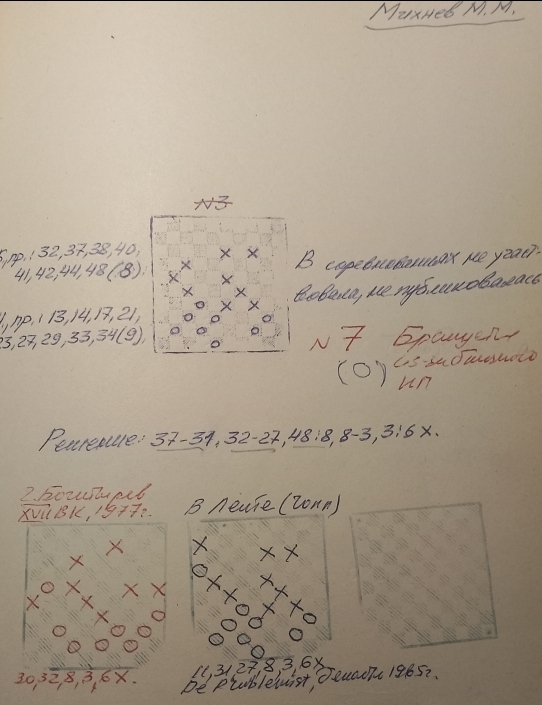 Михнев М.М.
N3
пр.: 32,37,38,40,
41,42,44,48(8);
В соревнованиях не участ-
вовала, не публиковалась
пр.: 13,14,17,21,
23,27,29,33,34(9).
N 7
(О)
ИП
Решение: 37-31, 32-27, 48:8, 8-3, 3:6 X.
XVII ВК, 1977г.
В Ленте (4 поп)
30,32,8,3,6X.
11,31,27,8,3,6X
De Problemist, 1965г.